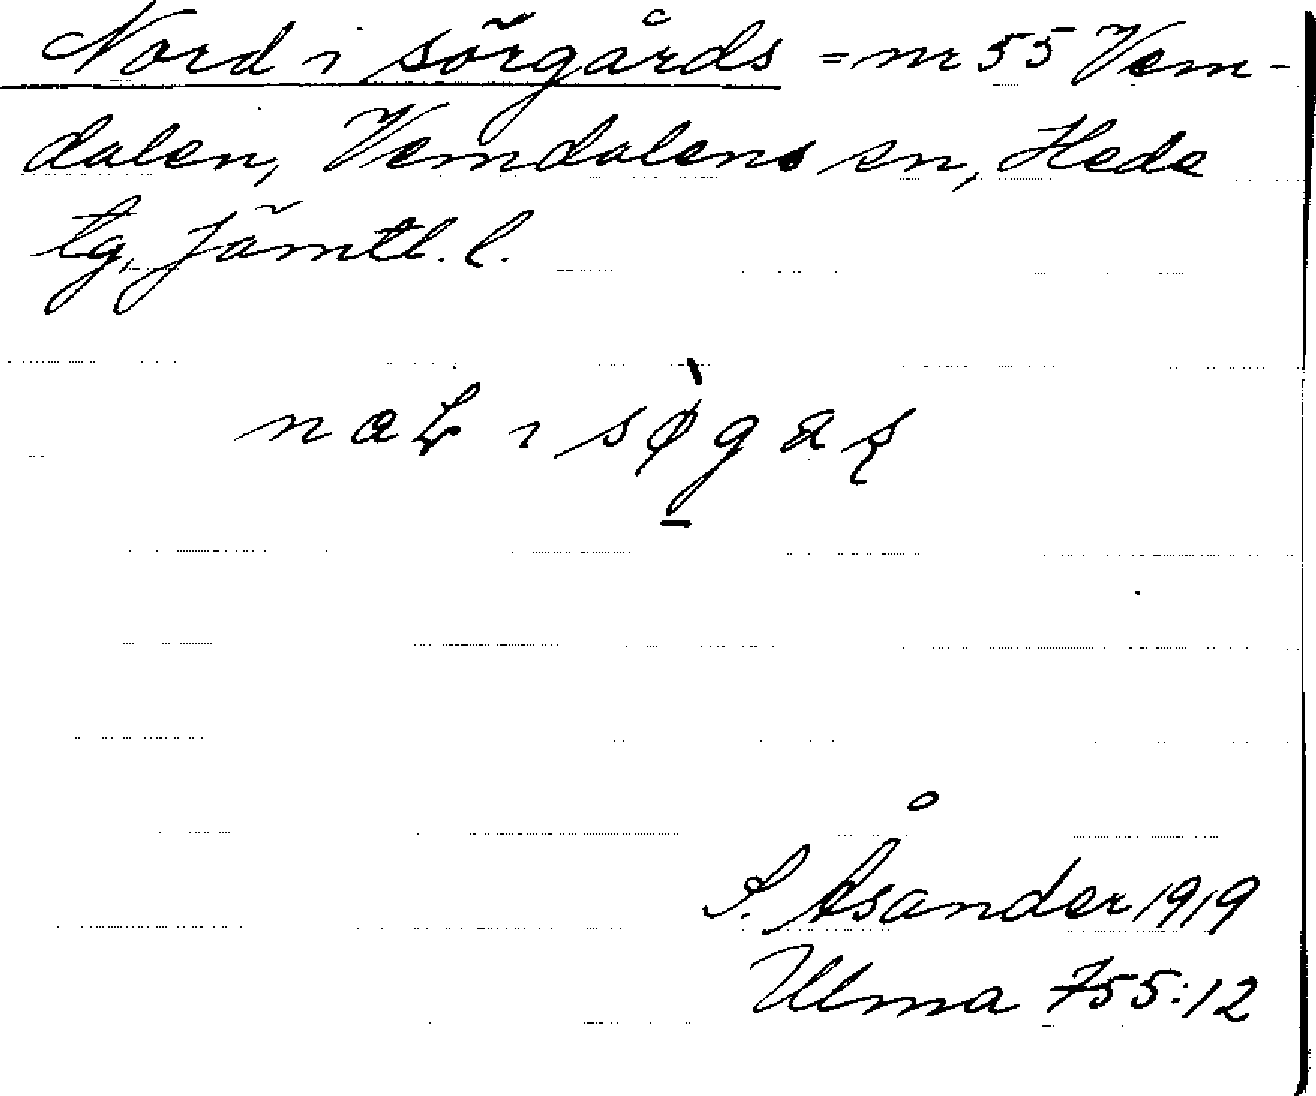 Nord i sörgårds = nr 55 Vem-
dalen, Vemdalens sn, Hede
tg, Jämtl. l.
S. Åsander 1919
Ulma 755:12